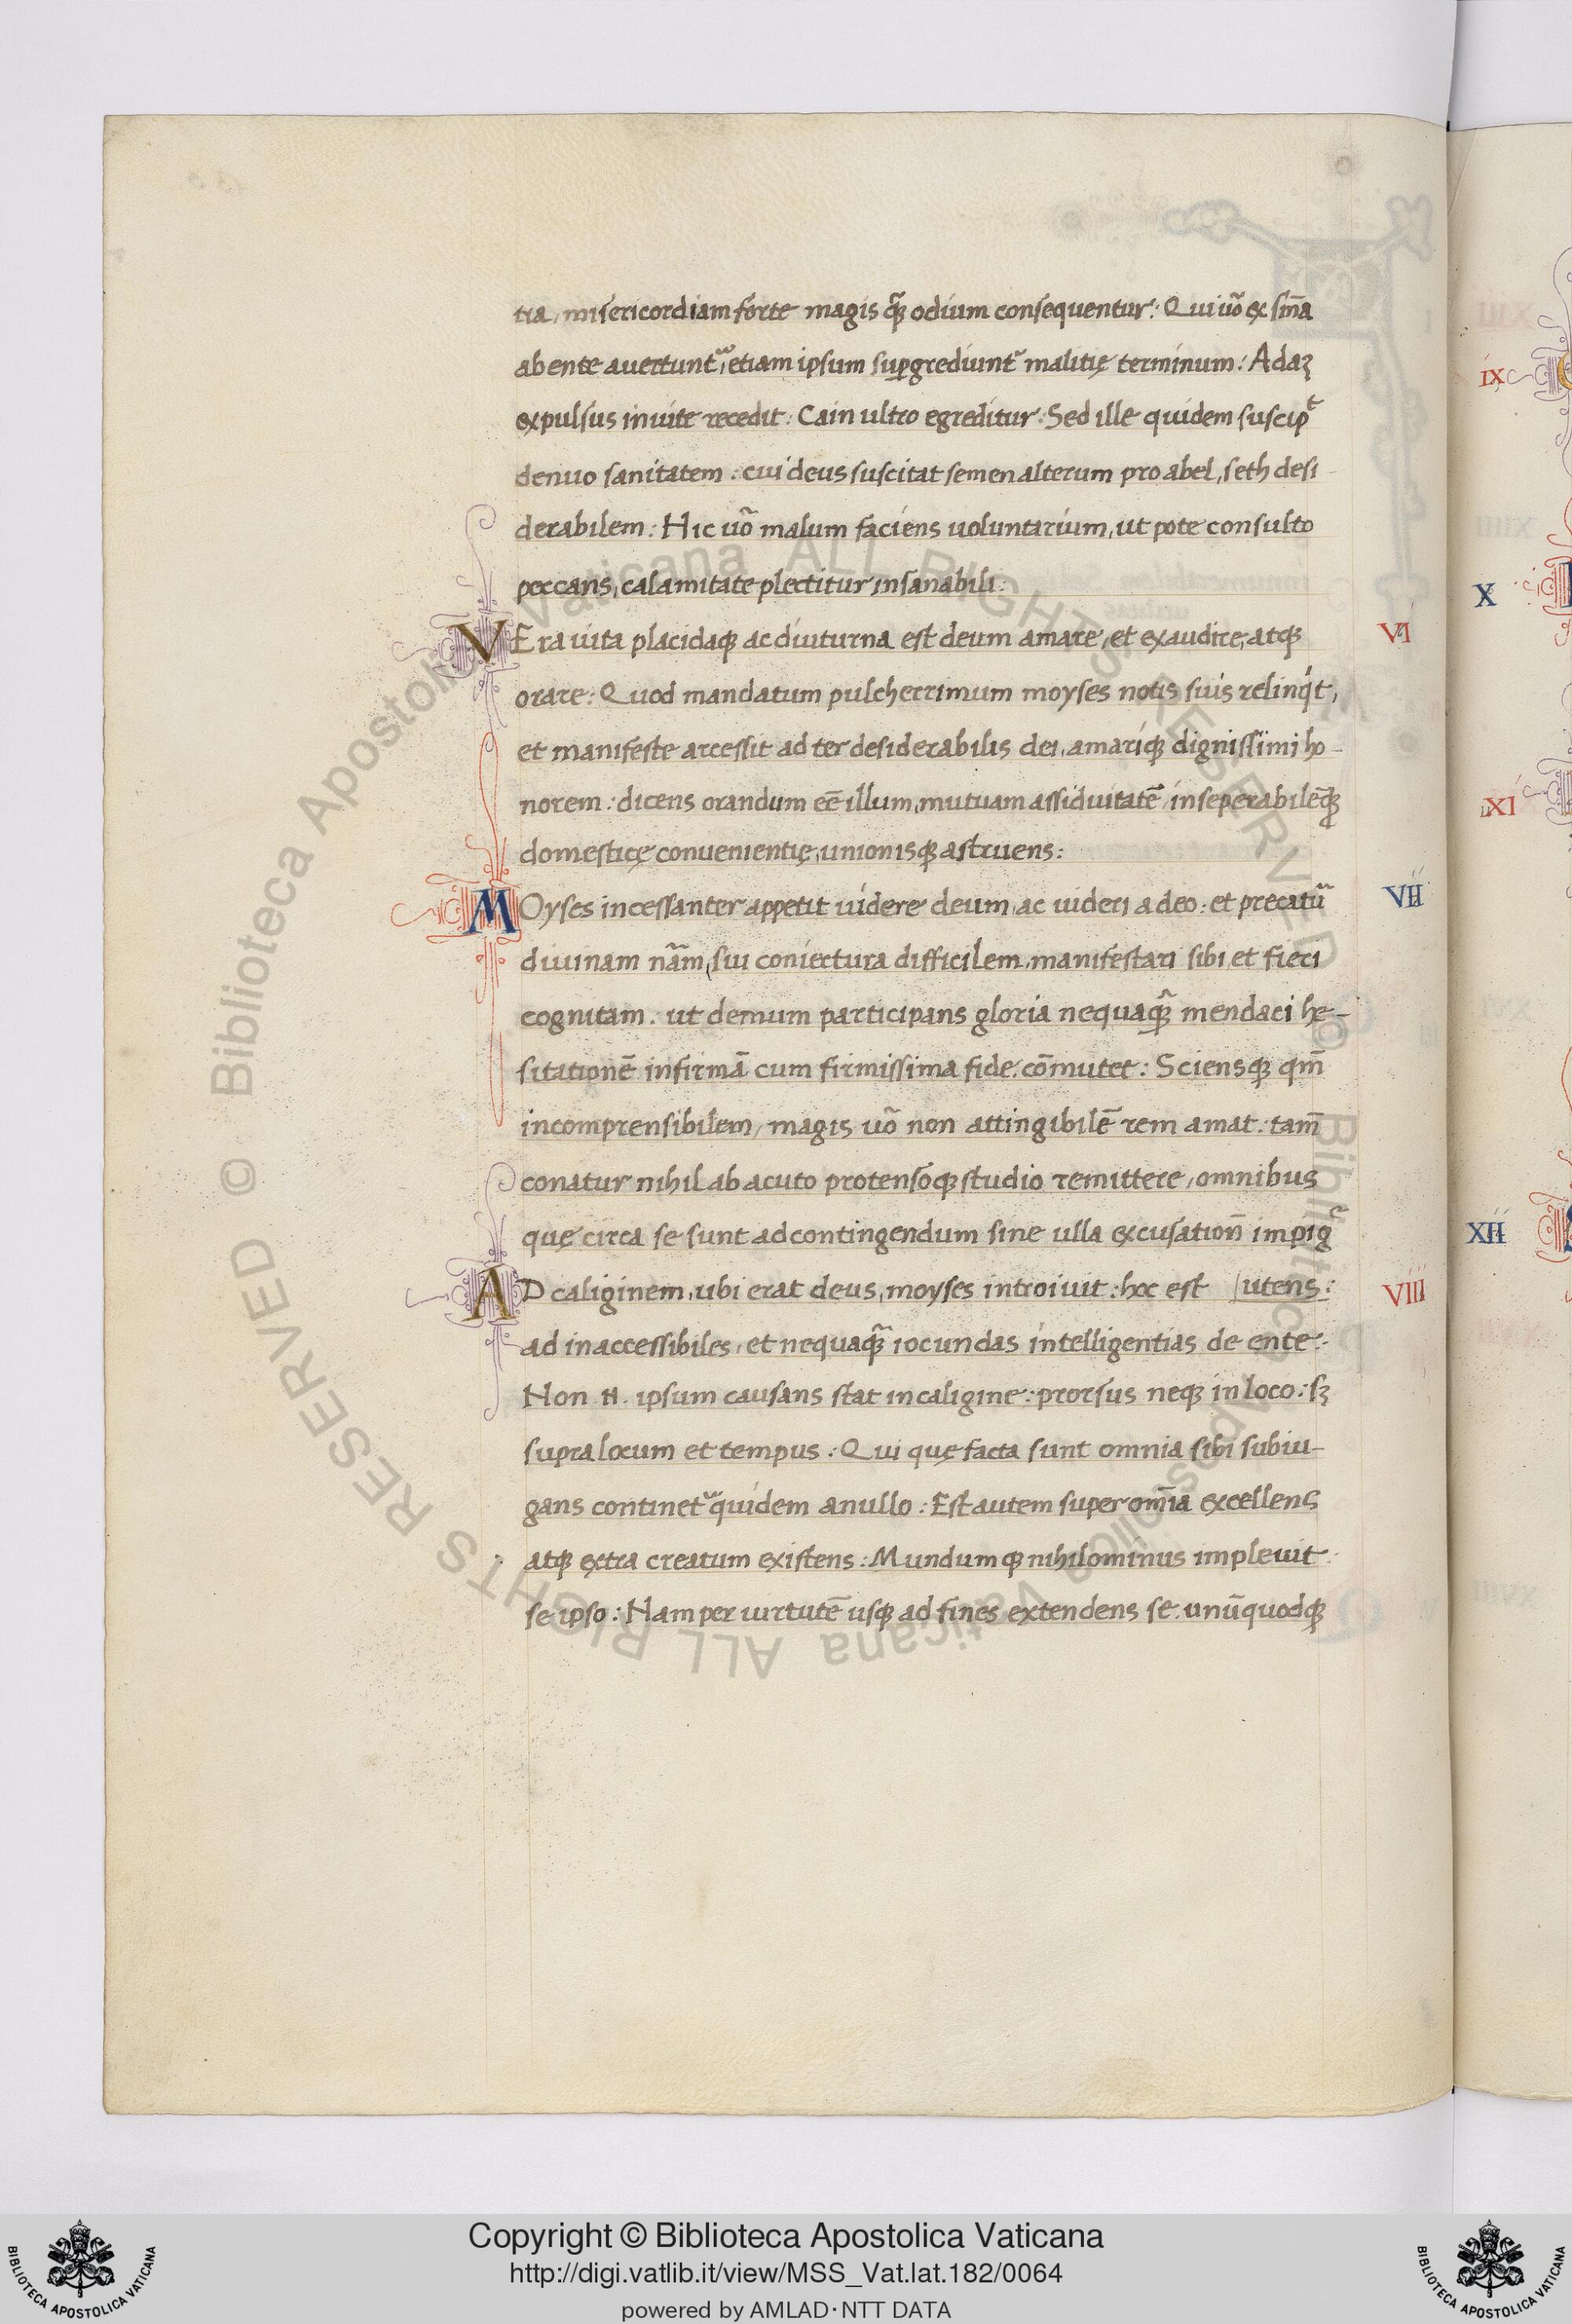 tia, misericordiam forte magis q̃ꝫ odium consequentur: Qui uõ ex sm̃a
ab ente auertuntᷣ, etiam ipsum suꝑgrediuntᷣ malitię terminum: Adaꝫ
expulsus inuite recedit: Cain ultro egreditur: Sed ille quidem suscipᵗ
denuo sanitatem: cui deus suscitat semen alterum pro abel, seth desi-
derabilem: Hic uõ malum faciens uoluntarium, ut pote consulto
peccans, calamitate plectitur insanabili:
VEra uita placidaqꝫ ac diuturna est deum amare, et exaudire, atqꝫ
VI
orare: Quod mandatum pulcherrimum moyses notis suis relinq́t,
et manifeste arcessit ad ter desiderabilis dei, amariqꝫ dignissimi ho-
norem: dicens orandum eē illum, mutuam assiduitatē, inseperabilēqꝫ
domesticę conuenientię, unionisqꝫ astruens:
MOyses incessanter appetit uidere deum, ac uideri a deo: et precatᷣ
VII
diuinam nãm, sui coniectura difficilem, manifestari sibi, et fieri
cognitam: ut demum participans gloria nequaq̃ꝫ mendaci hę-
sitationē infirmā cum firmissima fide cōmutet: Sciensqꝫ qm̃
incomprensibilem, magis uõ non attingibilē rem amat: tam̃
conatur nihil ab acuto protensoqꝫ studio remittere, omnibus
quę circa se sunt ad contingendum sine ulla excusation̄ impigᷣ
AD caliginem, ubi erat deus, moyses introiuit: hoc est utens:
VIII
ad inaccessibiles, et nequaq̃ꝫ iocundas intelligentias de ente:
Non .n. ipsum causans stat in caligine: prorsus neqꝫ in loco: sꝫ
supra locum et tempus: Qui quę facta sunt omnia sibi subiu-
gans continetᷣ quidem a nullo: Est autem super om̃ia excellens
atqꝫ extra creatum existens: Mundumqꝫ nihilominus impleuit
se ipso: Nam per uirtutē usqꝫ ad fines extendens se, unūquodqꝫ
IX
X
XI
XII
© Biblioteca Apostolica Vaticana ALL RIGHTS RESERVED
© Biblioteca Apostolica Vaticana ALL RIGHTS RESERVED
BIBLIOTECA APOSTOLICA VATICANA
Copyright © Biblioteca Apostolica Vaticana
http://digi.vatlib.it/view/MSS_Vat.lat.182/0064
powered by AMLAD·NTT DATA
BIBLIOTECA APOSTOLICA VATICANA